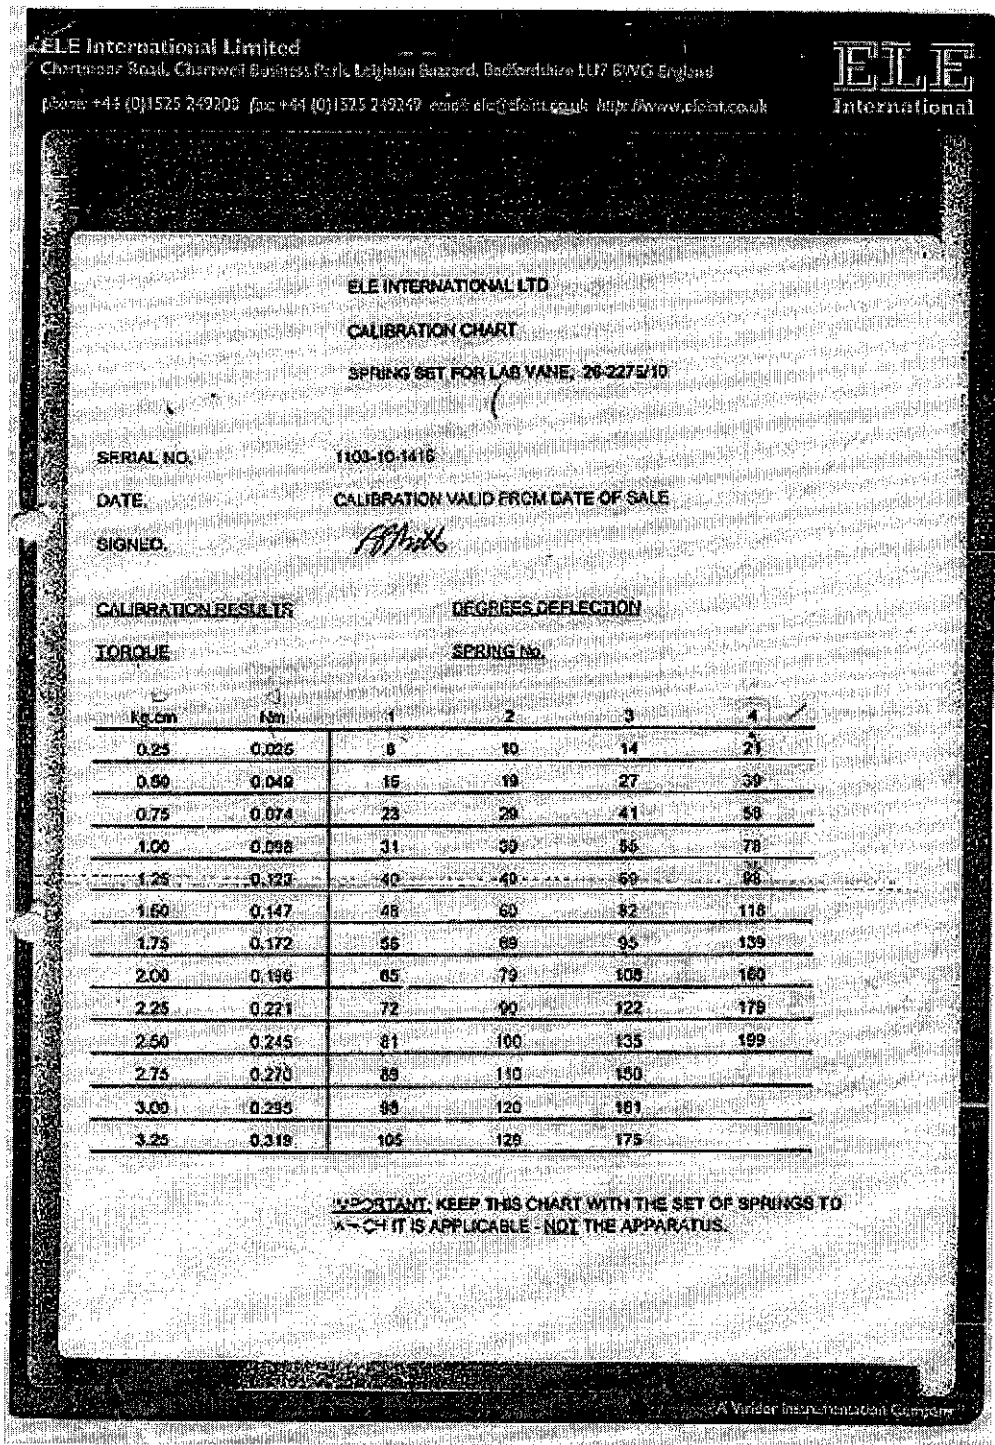 ELE International Limited
Chartmoor Road, Chartwell Business Park, Leighton Buzzard, Bedfordshire LU7 8WG England
phone: +44 (0)1525 249200 fax: +44 (0)1525 249249 email: ele@eleint.co.uk http://www.eleint.co.uk
ELE
International
ELE INTERNATIONAL LTD
CALIBRATION CHART
SPRING SET FOR LAB VANE; 26-2275/10
SERIAL NO. 1103-10-1416
DATE. CALIBRATION VALID FROM DATE OF SALE
SIGNED.
CALIBRATION RESULTS DEGREES DEFLECTION
TORQUE SPRING No.
kg.cm Nm 1 2 3 4
0.25 0.025 8 10 14 21
0.50 0.049 15 19 27 39
0.75 0.074 23 29 41 58
1.00 0.098 31 39 55 78
1.25 0.123 40 49 69 98
1.50 0.147 48 60 82 118
1.75 0.172 56 69 95 139
2.00 0.196 65 79 108 160
2.25 0.221 72 90 122 179
2.50 0.245 81 100 135 199
2.75 0.270 89 110 150
3.00 0.295 98 120 161
3.25 0.319 105 129 175
IMPORTANT: KEEP THIS CHART WITH THE SET OF SPRINGS TO
WHICH IT IS APPLICABLE - NOT THE APPARATUS.
A Verder Instrumentation Company